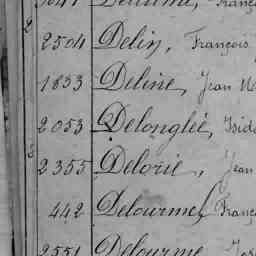 2504 Delin, François
1853 Deline, Jean M
2053 Delonglée, Isido
2355 Delorie, Jean
442 Delourmel, Franç
2551 Delourme, Jos